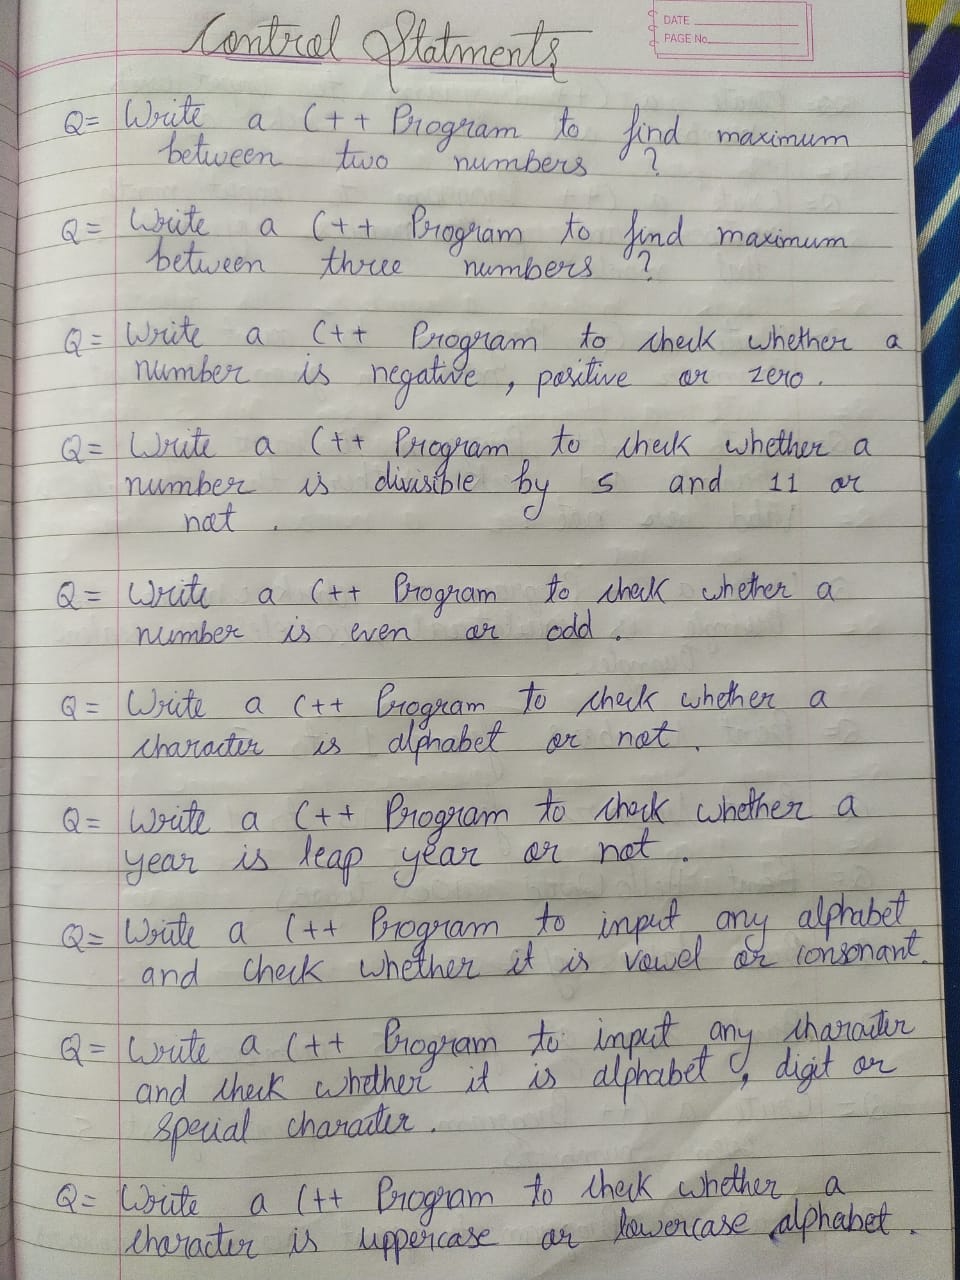 Control Statments
DATE
PAGE No.
Q= Write a C++ Program to find maximum
between two numbers ?
Q= Write a C++ Program to find maximum
between three numbers ?
Q= Write a C++ Program to check whether a
number is negative, positive or zero.
Q= Write a C++ Program to check whether a
number is divisible by 5 and 11 or
not .
Q= Write a C++ Program to check whether a
number is even or odd .
Q= Write a C++ Program to check whether a
character is alphabet or not .
Q= Write a C++ Program to check whether a
year is leap year or not .
Q= Write a C++ Program to input any alphabet
and check whether it is vowel or consonant.
Q= Write a C++ Program to input any character
and check whether it is alphabet, digit or
special character .
Q= Write a C++ Program to check whether a
character is uppercase or lowercase alphabet .